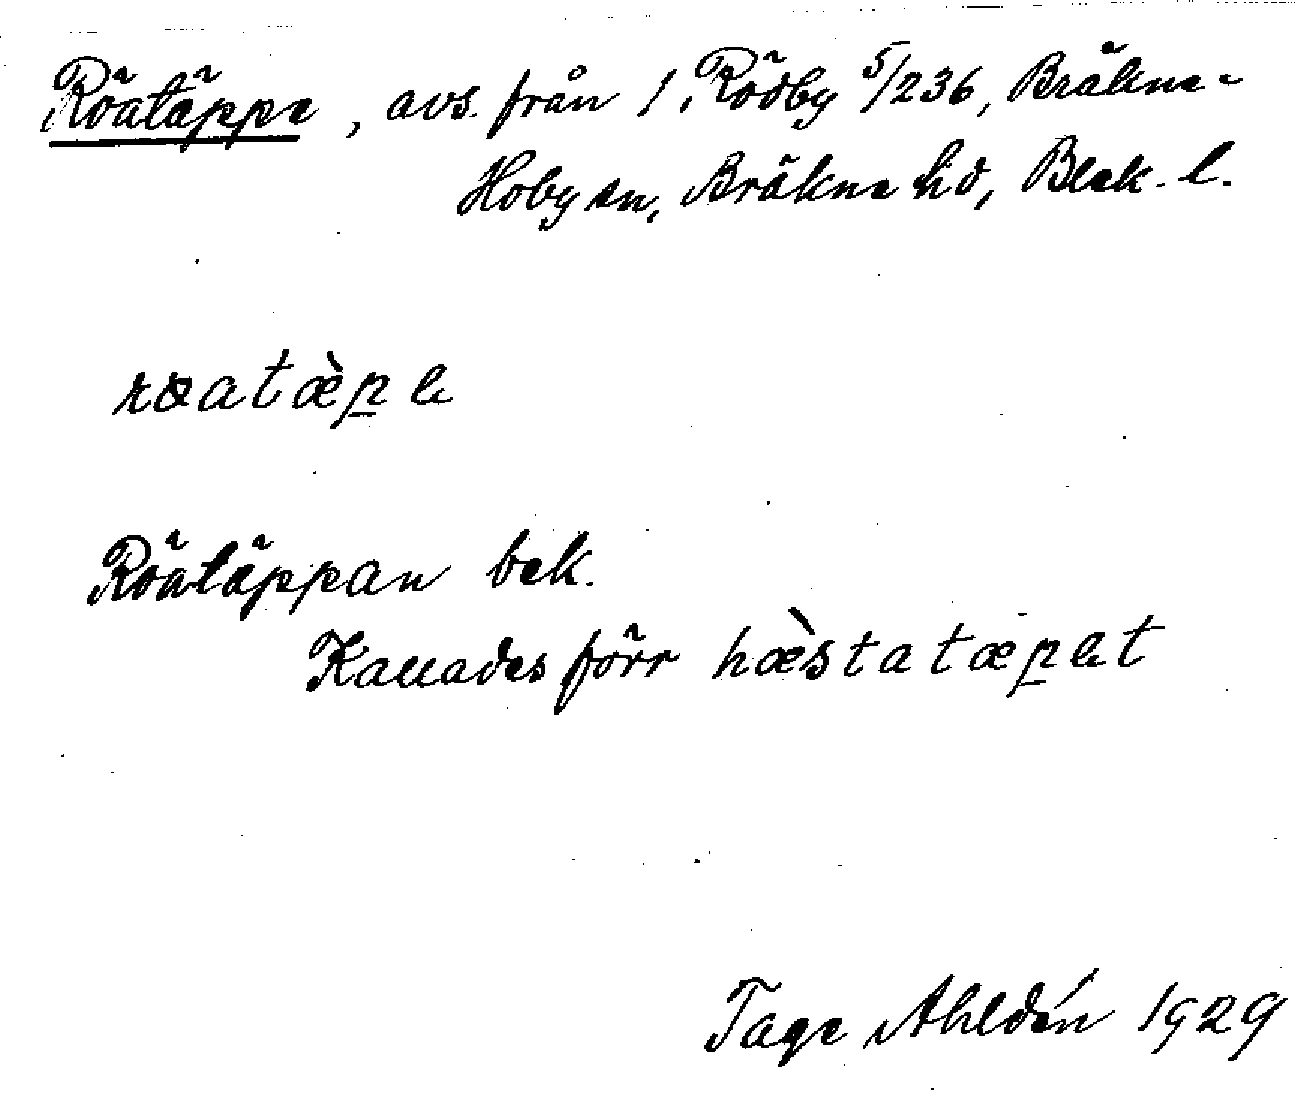 Röatäppe, avs. från 1 Rödby 5/236, Bräkne-
Hoby sn, Bräkne hd, Blek. l.
røatæ̀pe
Röatäppan bek.
Kallades förr hæ̀statæpet
Tage Ahldén 1929